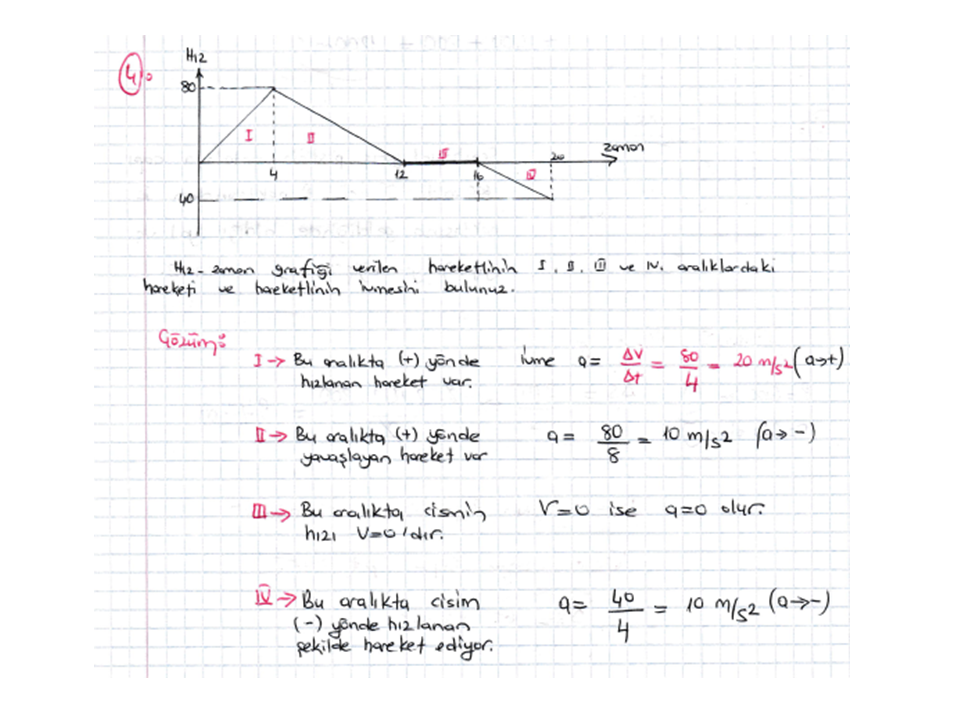 4.
Hız
80
I
II
III
zaman
20
4
12
16
IV
40
Hız-zaman grafiği verilen hareketlinin I, II, III ve IV. aralıklardaki
hareketi ve hareketlinin ivmesini bulunuz.
Çözüm:
I → Bu aralıkta (+) yönde İvme a = ΔV/Δt = 80/4 = 20 m/s2 (a→+)
hızlanan hareket var.
II → Bu aralıkta (+) yönde a = 80/8 = 10 m/s2 (a→-)
yavaşlayan hareket var
III → Bu aralıkta cismin V=0 ise a=0 olur.
hızı V=0'dır.
IV → Bu aralıkta cisim a = 40/4 = 10 m/s2 (a→-)
(-) yönde hızlanan
şekilde hareket ediyor.